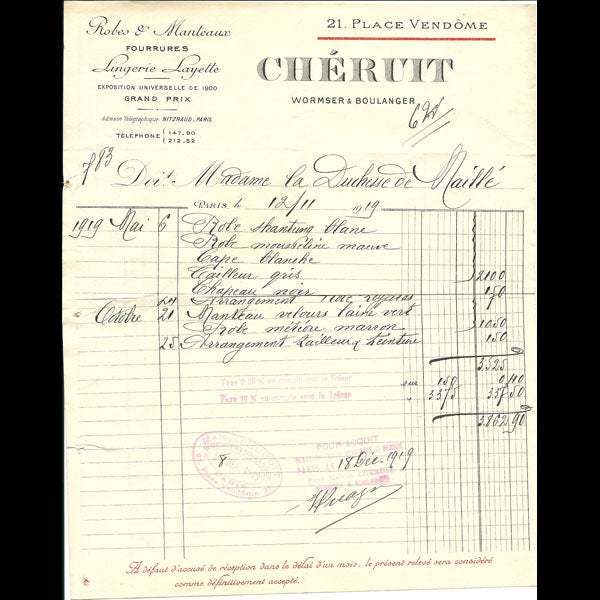 Robes & Manteaux
FOURRURES
Lingerie Layette
EXPOSITION UNIVERSELLE DE 1900
GRAND PRIX
Adresse Télégraphique NITZRAUD_PARIS
TÉLÉPHONE 147.90
212.32
21, PLACE VENDÔME
CHÉRUIT
WORMSER & BOULANGER
Doit Madame la Duchesse de Maillé
PARIS, le 12/11 1919
1919 Mai 6 Robe shantung blanc
Robe mousseline mauve
Cape blanche
Tailleur gris 2100
Chapeau noir 150
24 Arrangement
Octobre 21 Manteau velours laine vert
Robe météore marron 1050
25 Arrangement tailleur teinture 150
3.525
Taxe 0,30 % au compte avec le Trésor sur 150 0,40
Taxe 10 % au compte avec le Trésor " 3375 337,50
3.862,90
POUR ACQUIT
PARIS, LE 18 Déc. 1919
8
A défaut d'accusé de réception dans le délai d'un mois, le présent relevé sera considéré
comme définitivement accepté.